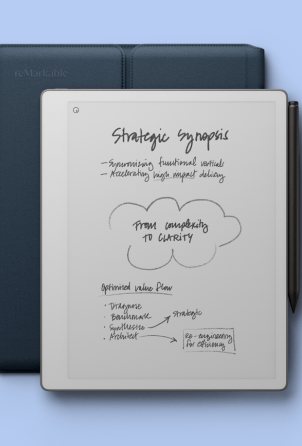 reMarkable
Strategic Synopsis
– Syncronizing functional verticals
– Accelerating high impact delivery
From complexity
TO CLARITY
Optimised value flow
· Diagnose
· Benchmark
· Synthesize
· Architect
strategic
re-engineering
for efficiency